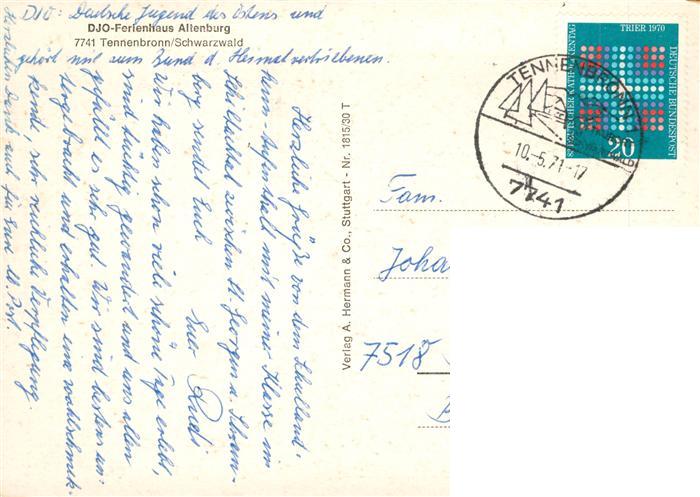 DJO: Deutsche Jugend des Ostens und
DJO-Ferienhaus Altenburg
7741 Tennenbronn/Schwarzwald
gehört mit zum Bund d. Heimatvertriebenen.
Herzliche Grüße von dem Schulland-
heim-Aufenthalt mit meiner Klasse im
Schiltachtal zwischen St. Georgen u. Schram-
berg sendet Euch
Euer Rudi
Wir haben schon viele schöne Tage erlebt,
sind tüchtig gewandert und uns allen
gefällt es sehr gut. Wir sind bestens un-
tergebracht und erhalten eine wohlschmek-
kende sehr reichliche Verpflegung.
Herzlichen Dank auch für Eure lb. Post.
Verlag A. Hermann & Co., Stuttgart - Nr. 1815/30 T
TRIER 1970
DEUTSCHE BUNDESPOST
20
TENNENBRONN
10.-5.71-17
7741
Fam.
Joha
7518